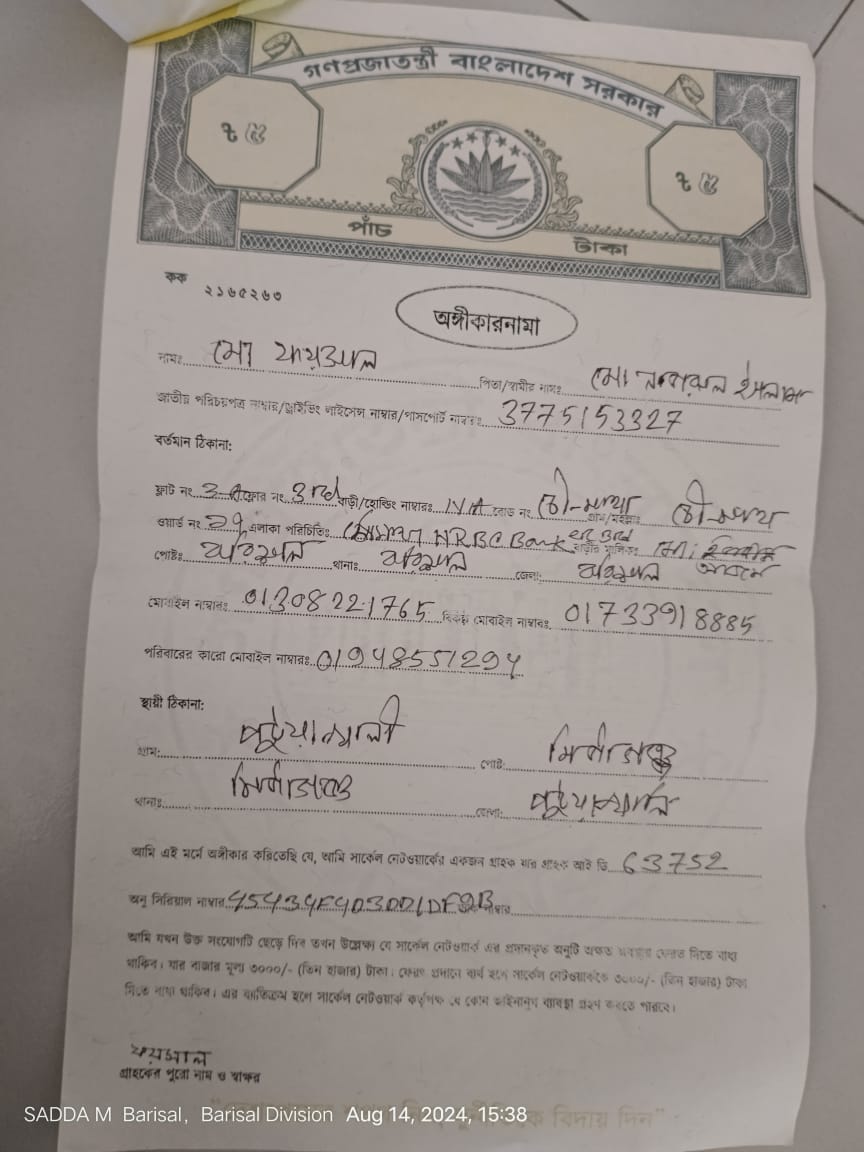 গণপ্রজাতন্ত্রী বাংলাদেশ সরকার
৳ ৫ ৳ ৫
পাঁচ টাকা
কক ২১৬৫২৬৩
অঙ্গীকারনামা
নামঃ মো ফয়সাল পিতা/স্বামীর নামঃ মোঃ ইসলাম
জাতীয় পরিচয়পত্র নাম্বার/ড্রাইভিং লাইসেন্স নাম্বার/পাসপোর্ট নাম্বারঃ 3775153327
বর্তমান ঠিকানা:
ফ্লাট নং 3-A ফ্লোর নং 3rd বাড়ী/হোল্ডিং নাম্বারঃ N/A রোড নং চৌ-মাথা গ্রাম/মহল্লাঃ চৌ-মাথা
ওয়ার্ড নং এলাকা পরিচিতিঃ NRBC Bank এর 3rd বাড়ীর মালিকঃ মো:
পোষ্টঃ বরিশাল থানাঃ বরিশাল জেলা: বরিশাল
মোবাইল নাম্বারঃ 01308221765 বিকল্প মোবাইল নাম্বারঃ 01733918885
পরিবারের কারো মোবাইল নাম্বারঃ 01948551294
স্থায়ী ঠিকানা:
গ্রাম: পটুয়াখালী পোষ্ট: মির্জাগঞ্জ
থানাঃ মির্জাগঞ্জ জেলা: পটুয়াখালি
আমি এই মর্মে অঙ্গীকার করিতেছি যে, আমি সার্কেল নেটওয়ার্কের একজন গ্রাহক যার গ্রাহক আই ডি 63752
অনু সিরিয়াল নাম্বার 45434F4D3DD1DF9B নাম্বার
আমি যখন উক্ত সংযোগটি ছেড়ে দিব তখন উল্লেখ্য যে সার্কেল নেটওয়ার্ক এর প্রদানকৃত অনুটি অক্ষত অবস্থায় ফেরত দিতে বাধ্য
থাকিব। যার বাজার মূল্য ৩০০০/- (তিন হাজার) টাকা। ফেরৎ প্রদানে ব্যর্থ হলে সার্কেল নেটওয়ার্ককে ৩০০০/- (তিন হাজার) টাকা
দিতে বাধ্য থাকিব। এর ব্যতিক্রম হলে সার্কেল নেটওয়ার্ক কর্তৃপক্ষ যে কোন আইনানুগ ব্যবস্থা গ্রহণ করতে পারবে।
ফয়সাল
গ্রাহকের পুরো নাম ও স্বাক্ষর
SADDA M Barisal, Barisal Division Aug 14, 2024, 15:38
বিদায় দিন”